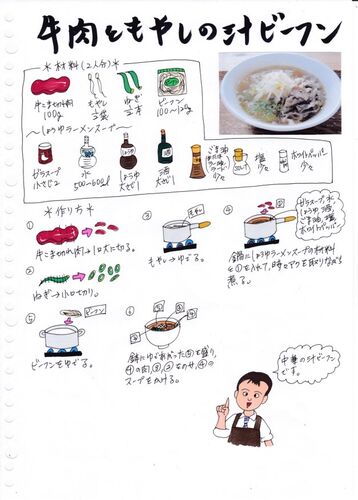 牛肉ともやしの汁ビーフン
＊材料(2人分)＊
牛こま切れ肉
100g
もやし
1/2袋
ねぎ
1/2本
ビーフン
100〜120g
〜しょうゆラーメンスープ〜
ガラスープ
小さじ2
水
500〜600ml
しょうゆ
大さじ1
酒
大さじ1
ごま油
少々
塩
少々
ホワイトペッパー
少々
＊作り方＊
①
牛こま切れ肉→1口大に切る。
②
ねぎ→小口切り。
③
もやし
もやし→ゆでる。
④
ガラスープ、水
しょうゆ、酒、
ごま油、塩
ホワイトペッパー
鍋にしょうゆラーメンスープの材料
と①を入れて、時々アクを取りながら
煮る。
⑤
ビーフン
ビーフンをゆでる。
⑥
鉢にゆであがった⑤を盛り、
④の肉、③、②をのせ、④の
スープをかける。
中華の汁ビーフン
です。